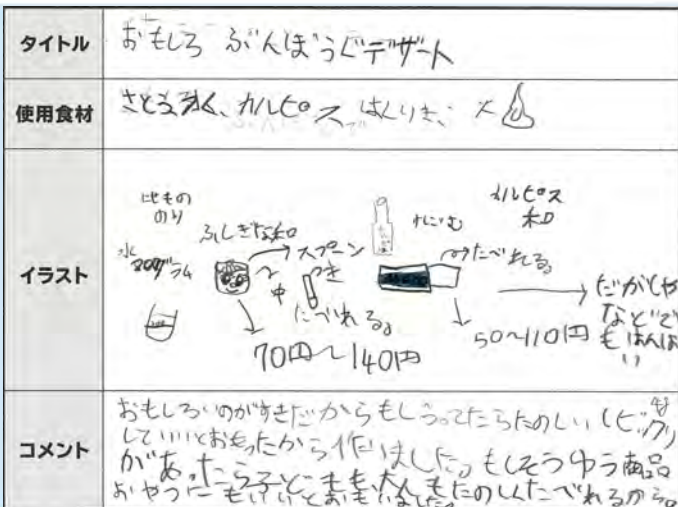 タイトル
おもしろ ぶんぼうぐデザート
使用食材
さとう、水、カルピス はくりき、火
イラスト
のり
ふしぎな和
水
20グラム
スプーン
つき
中
たべれる。
70円〜140円
カルピス
和
けしごむ
たべれる。
50〜110円
だがしや
などで
もはんば
い
コメント
おもしろいのがすきだからもしうってたらたのしい(ビックリ
していいとおもったから作りました。もしそうゆう商品
があったら子どもも、大人もたのしくたべれるから。
おやつに もいいとおもいました。